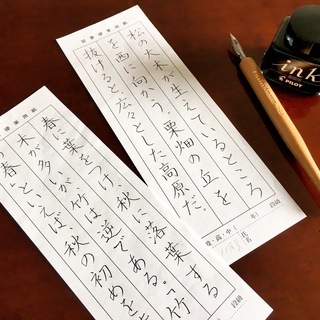 硬書硬筆用紙
松の大木が生えているところ
を西に向かう。栗畑の丘を
抜けると、広々とした高原だ。
段級
氏名
硬筆用紙
春に葉をつけ、秋に落葉する
木が多いが、竹は逆である。「竹
春」といえば、秋の初めを
ink
PILOT